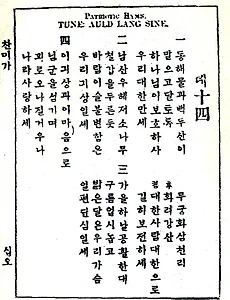 PATRIOTIC HYMN.
TUNE: AULD LANG SINE.
뎨十四
一 동해물과백두산이
말으고달토록
하나님이보호하사
우리대한만세
무궁화삼천리
화려강산
대한사람대한으로
길히보전하세
二 남산우헤저소나무
철갑을두른듯
바람이슬불변함은
우리긔상일세
三 가을하날공활한대
구름업시놉고
밝은달은우리가슴
일편단심일세
四 이긔상과이마음으로
님군을섬기며
괴로오나질거우나
나라사랑하세
찬미가
십오